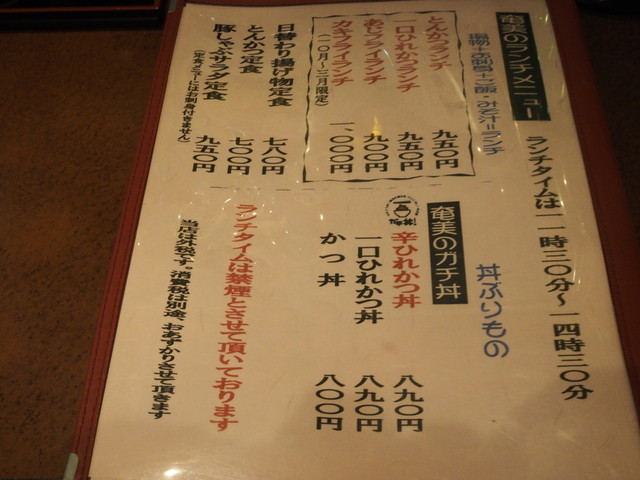 奄美のランチメニュー
ランチタイムは一一時三〇分〜一四時三〇分
揚物+お刺身+ご飯・みそ汁=ランチ
とんかつランチ 九五〇円
一口ひれかつランチ 九五〇円
あじフライランチ 九〇〇円
カキフライランチ 一、〇〇〇円
(一〇月〜三月限定)
日替わり揚げ物定食 七八〇円
とんかつ定食 七〇〇円
豚しゃぶサラダ定食 九五〇円
(定食メニューにはお刺身付きません)
丼ぶりもの
奄美のガチ丼
辛ひれかつ丼 八九〇円
一口ひれかつ丼 八九〇円
かつ丼 八〇〇円
ランチタイムは禁煙とさせて頂いております
当店は外税です。消費税は別途、おあずかりさせて頂きます